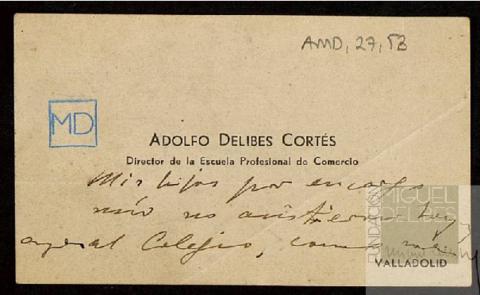 AMD, 27, 53
MD
ADOLFO DELIBES CORTÉS
Director de la Escuela Profesional de Comercio
Mis hijos por encargo
mío no asistieron hoy
al Colegio, como
VALLADOLID
FUNDACIÓN
MIGUEL
DELIBES